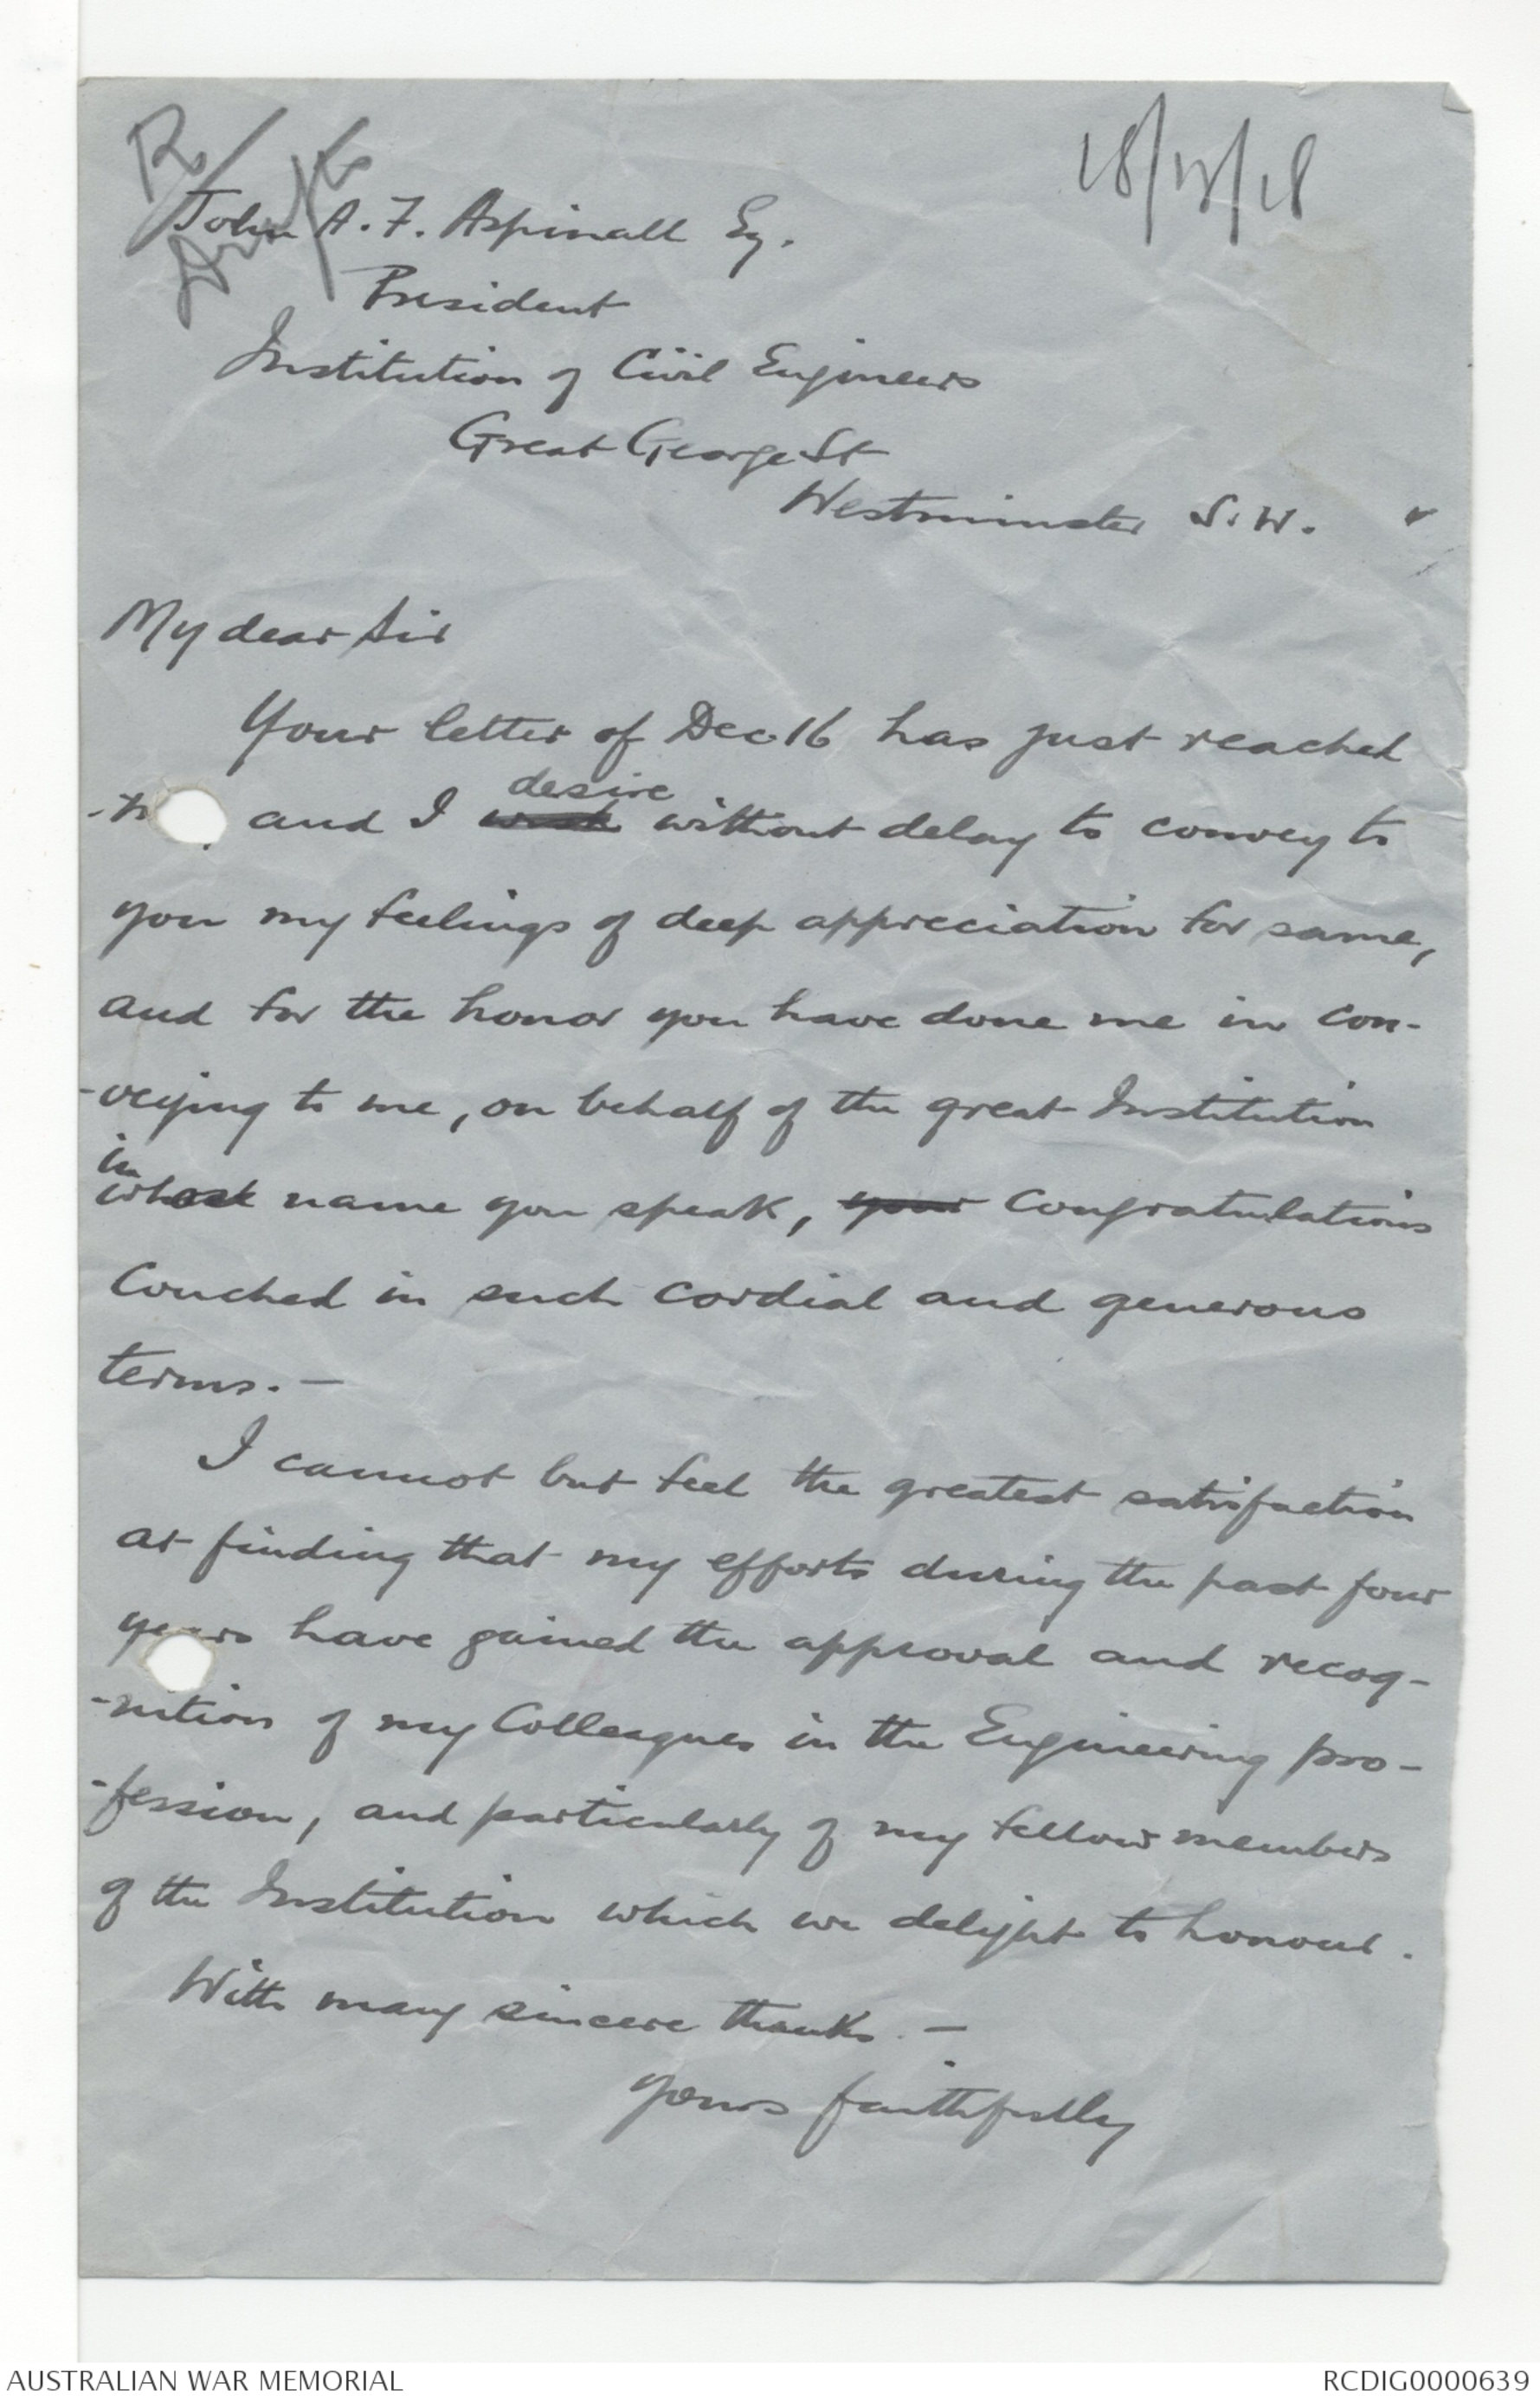 18/12/18
John A. F. Aspinall Esq.
President
Institution of Civil Engineers
Great George St
Westminster S.W.
My dear Sir
Your letter of Dec 16 has just reached
and I wish desire without delay to convey to
you my feelings of deep appreciation for same,
and for the honor you have done me in con-
-veying to me, on behalf of the great Institution
in whose name you speak, your congratulations
couched in such cordial and generous
terms. —
I cannot but feel the greatest satisfaction
at finding that my efforts during the past four
years have gained the approval and recog-
-nition of my Colleagues in the Engineering pro-
-fession, and particularly of my fellow members
of the Institution which we delight to honour.
With many sincere thanks. —
Yours faithfully
AUSTRALIAN WAR MEMORIAL
RCDIG0000639